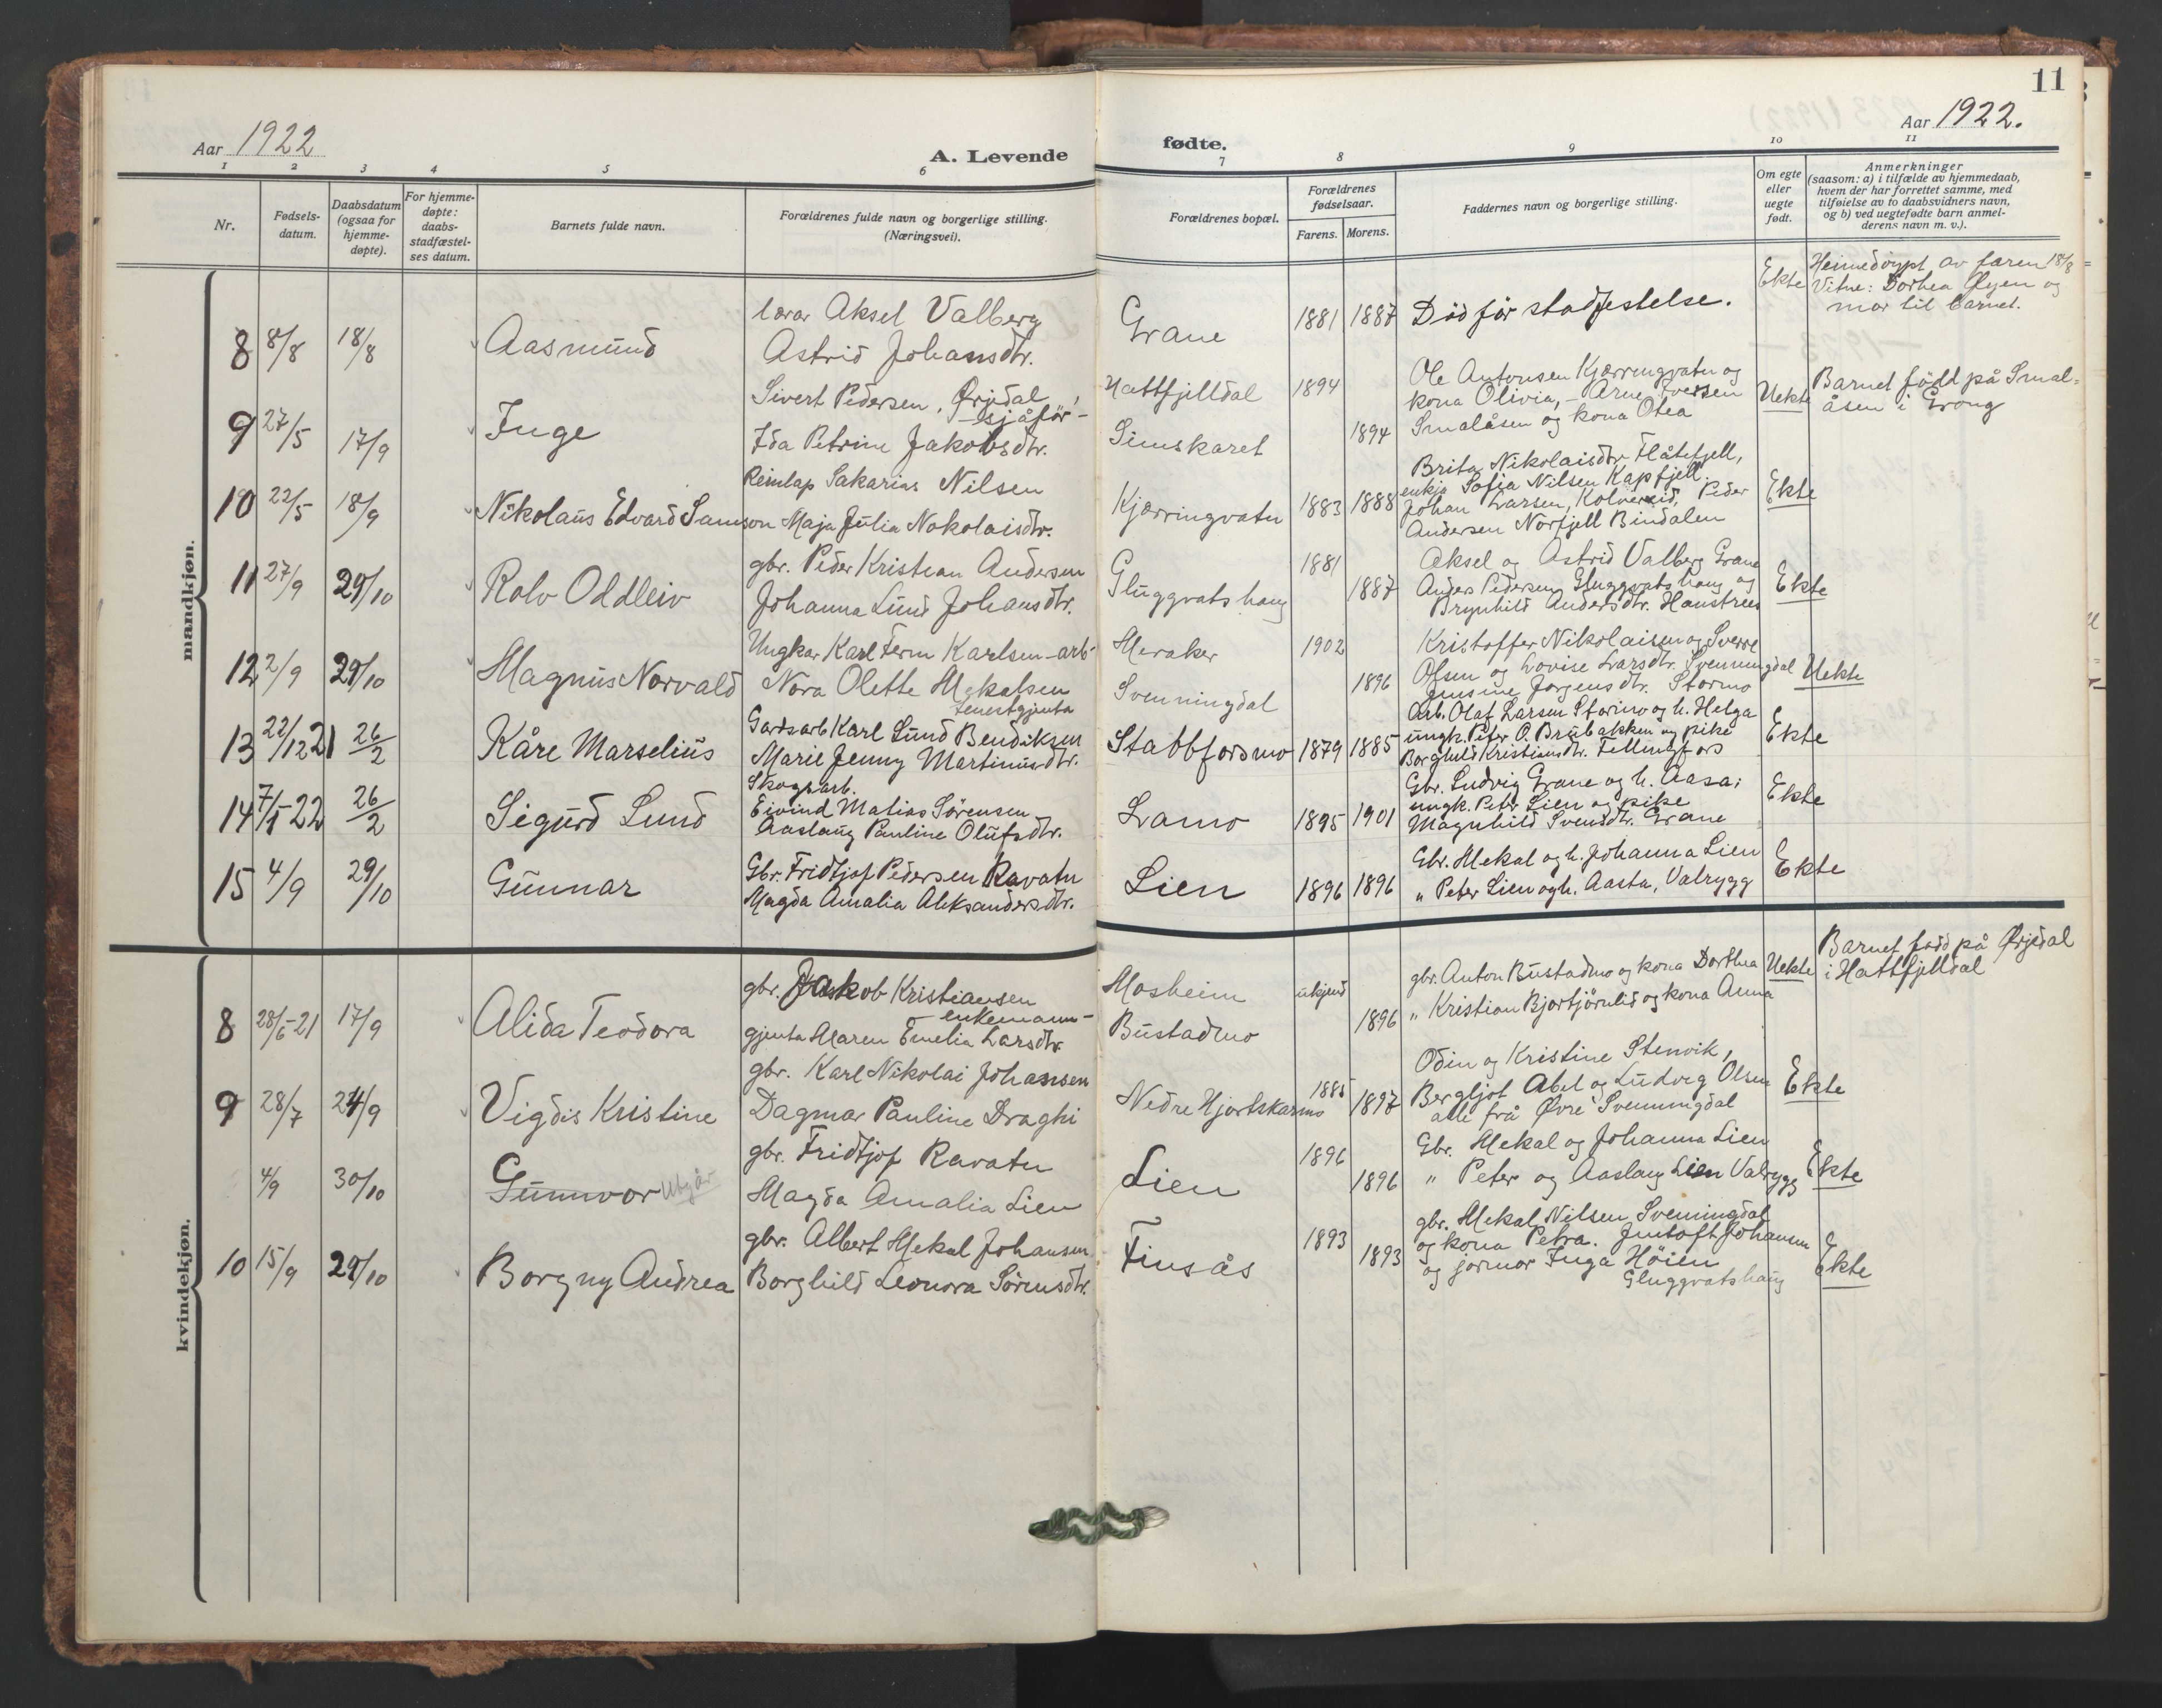 11
Aar 1922
A. Levende fødte.
Aar 1922.
1 2 3 4 5 6 7 8 9 10 11
Nr.
Fødsels-datum.
Daabsdatum (ogsaa for hjemme-døpte).
For hjemme-døpte: daabs-stadfæstel-ses datum.
Barnets fulde navn.
Forældrenes fulde navn og borgerlige stilling. (Næringsvei).
Forældrenes bopæl.
Forældrenes fødselsaar.
Farens. Morens.
Faddernes navn og borgerlige stilling.
Om egte eller uegte født.
Anmerkninger
(saasom: a) i tilfælde av hjemmedaab,
hvem der har forrettet samme, med
tilføielse av to daabsvidners navn,
og b) ved uegtefødte barn anmel-
derens navn m. v.).
mandkjøn.
8 8/8 18/8 Aasmund
lærar Aksel Valberg
Astrid Johansdtr.
Grane 1881 1887 Død før stadfestelse. Ekte
Heimedøypt av faren 18/8
Vitne: Dorhea Øyen og
mor til barnet.
9 27/5 17/9 Inge
Sivert Pedersen, Ørjedal,
- sjåfør -
Ida Petrine Jakobsdtr.
Hattfjelldal 1894
Simskaret 1894
Ole Antonsen Kjærringvatn og
kona Olivia, - Arne Iversen
Smalåsen og kona Otea
Uekte
Barnet født på Smal=
åsen i Grong
10 22/5 18/9 Nikolaus Edvard Samson
Reinlap Sakarias Nilsen
Maja Julia Nokolaisdtr.
Kjærringvatn 1883 1888
Brita Nikolaisdtr Flåtefjell,
enkja Sofia Nilsen Kapfjell.
Johan Larsen, Kolvereid, Peder
Andersen Norfjell Bindalen
Ekte
11 27/9 29/10 Rolv Oddleiv
gbr. Peder Kristian Andersen
Johanna Lund Johansdtr.
Gluggvatshaug 1881 1887
Aksel og Astrid Valberg Grane
Anders Pedersen Gluggvatshaug og
Brynhild Andersdtr. Haustreis
Ekte
12 2/9 29/10 Magnus Norvald
Ungkar Karl Ferm Karlsen - arb-
Nora Olette Mekalsen
tenestgjenta
Meraker 1902
Svenningdal 1896
Kristoffer Nikolaisen og Sverre
Olsen og Lovise Larsdtr. Svenningdal
Jensine Jørgensdtr. Stormo
Uekte
13 22/12 21 26/2 Kåre Marselius
Gardsarb Karl Lund Bendiksen
Marie Jenny Martinusdtr.
Stabbforsmo 1879 1885
Arb. Olaf Larsen Stormo og h. Helga
ungk. Peter O. Brubakken og pike
Borghild Kristiansdtr. Fellingfors
Ekte
14 7/1-22 26/2 Sigurd Lund
Skogsarb.
Eivind Matias Sørensen
Aaslaug Pauline Olufsdtr.
Lamo 1895 1901
Gbr. Ludvig Grane og h. Aasa;
ungk. Peter Lien og pike
Magnhild Svensdtr. Grane
Ekte
15 4/9 29/10 Gunnar
Gbr. Fridtjof Pedersen Ravatn
Magda Amalia Aleksandersdtr.
Lien 1896 1896
Gbr. Mekal og h. Johanna Lien
" Peter Lien og h. Aasta, Valrygg
Ekte
kvindekjøn.
8 28/6-21 17/9 Alida Teodora
gbr. Jakob Kristiansen
- enkemann -
gjenta Maren Emelia Larsdtr
Mosheim ukjend
Bustadmo 1896
gbr. Anton Bustadmo og kona Dorthea
" Kristian Bjortjørnlid og kona Anna
Uekte
Barnet født på Ørjedal
i Hattfjelldal
9 28/7 24/9 Vigdis Kristine
gbr. Karl Nikolai Johansen
Dagmar Pauline Draghi
Nedre Hjortskarmo 1885 1897
Odin og Kristine Stenvik,
Bergljot Abel og Ludvig Olsen
alle frå Øvre Svenningdal
Ekte
4/9 30/10 Gunnvor Utgår
gbr. Fridtjof Ravatn
Magda Amalia Lien
Lien 1896 1896
Gbr. Mekal og Johanna Lien
" Peter og Aaslaug Lien Valrygg
Ekte
10 15/9 29/10 Borgny Andrea
gbr. Albert Mekal Johansen
Borghild Leonora Sørensdtr.
Finsås 1893 1893
gbr. Mekal Nilsen Svenningdal
og kona Petra. Johansen
og jormor Inga Höien
Gluggvatshaug
Ekte